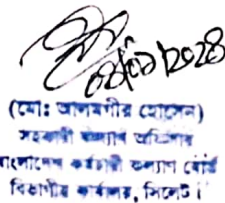 (মো: আলমগীর হোসেন)
সহকারী কল্যাণ অফিসার
বাংলাদেশ কর্মচারী কল্যাণ বোর্ড
বিভাগীয় কার্যালয়, সিলেট।